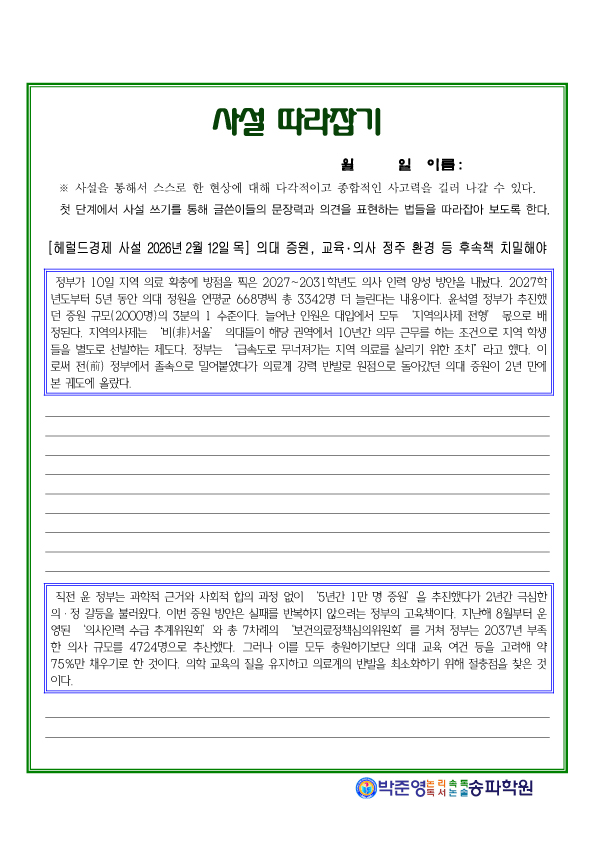 사설 따라잡기
월 일 이름:
※ 사설을 통해서 스스로 한 현상에 대해 다각적이고 종합적인 사고력을 길러 나갈 수 있다.
첫 단계에서 사설 쓰기를 통해 글쓴이들의 문장력과 의견을 표현하는 법들을 따라잡아 보도록 한다.
[헤럴드경제 사설 2026년 2월 12일 목] 의대 증원, 교육·의사 정주 환경 등 후속책 치밀해야
정부가 10일 지역 의료 확충에 방점을 찍은 2027~2031학년도 의사 인력 양성 방안을 내놨다. 2027학
년도부터 5년 동안 의대 정원을 연평균 668명씩 총 3342명 더 늘린다는 내용이다. 윤석열 정부가 추진했
던 증원 규모(2000명)의 3분의 1 수준이다. 늘어난 인원은 대입에서 모두 ‘지역의사제 전형’ 몫으로 배
정된다. 지역의사제는 ‘비(非)서울’ 의대들이 해당 권역에서 10년간 의무 근무를 하는 조건으로 지역 학생
들을 별도로 선발하는 제도다. 정부는 “급속도로 무너져가는 지역 의료를 살리기 위한 조치”라고 했다. 이
로써 전(前) 정부에서 졸속으로 밀어붙였다가 의료계 강력 반발로 원점으로 돌아갔던 의대 증원이 2년 만에
본 궤도에 올랐다.
직전 윤 정부는 과학적 근거와 사회적 합의 과정 없이 ‘5년간 1만 명 증원’을 추진했다가 2년간 극심한
의·정 갈등을 불러왔다. 이번 증원 방안은 실패를 반복하지 않으려는 정부의 고육책이다. 지난해 8월부터 운
영된 ‘의사인력 수급 추계위원회’와 총 7차례의 ‘보건의료정책심의위원회’를 거쳐 정부는 2037년 부족
한 의사 규모를 4724명으로 추산했다. 그러나 이를 모두 충원하기보단 의대 교육 여건 등을 고려해 약
75%만 채우기로 한 것이다. 의학 교육의 질을 유지하고 의료계의 반발을 최소화하기 위해 절충점을 찾은 것
이다.
박준영 논리속독 독서논술 송파학원